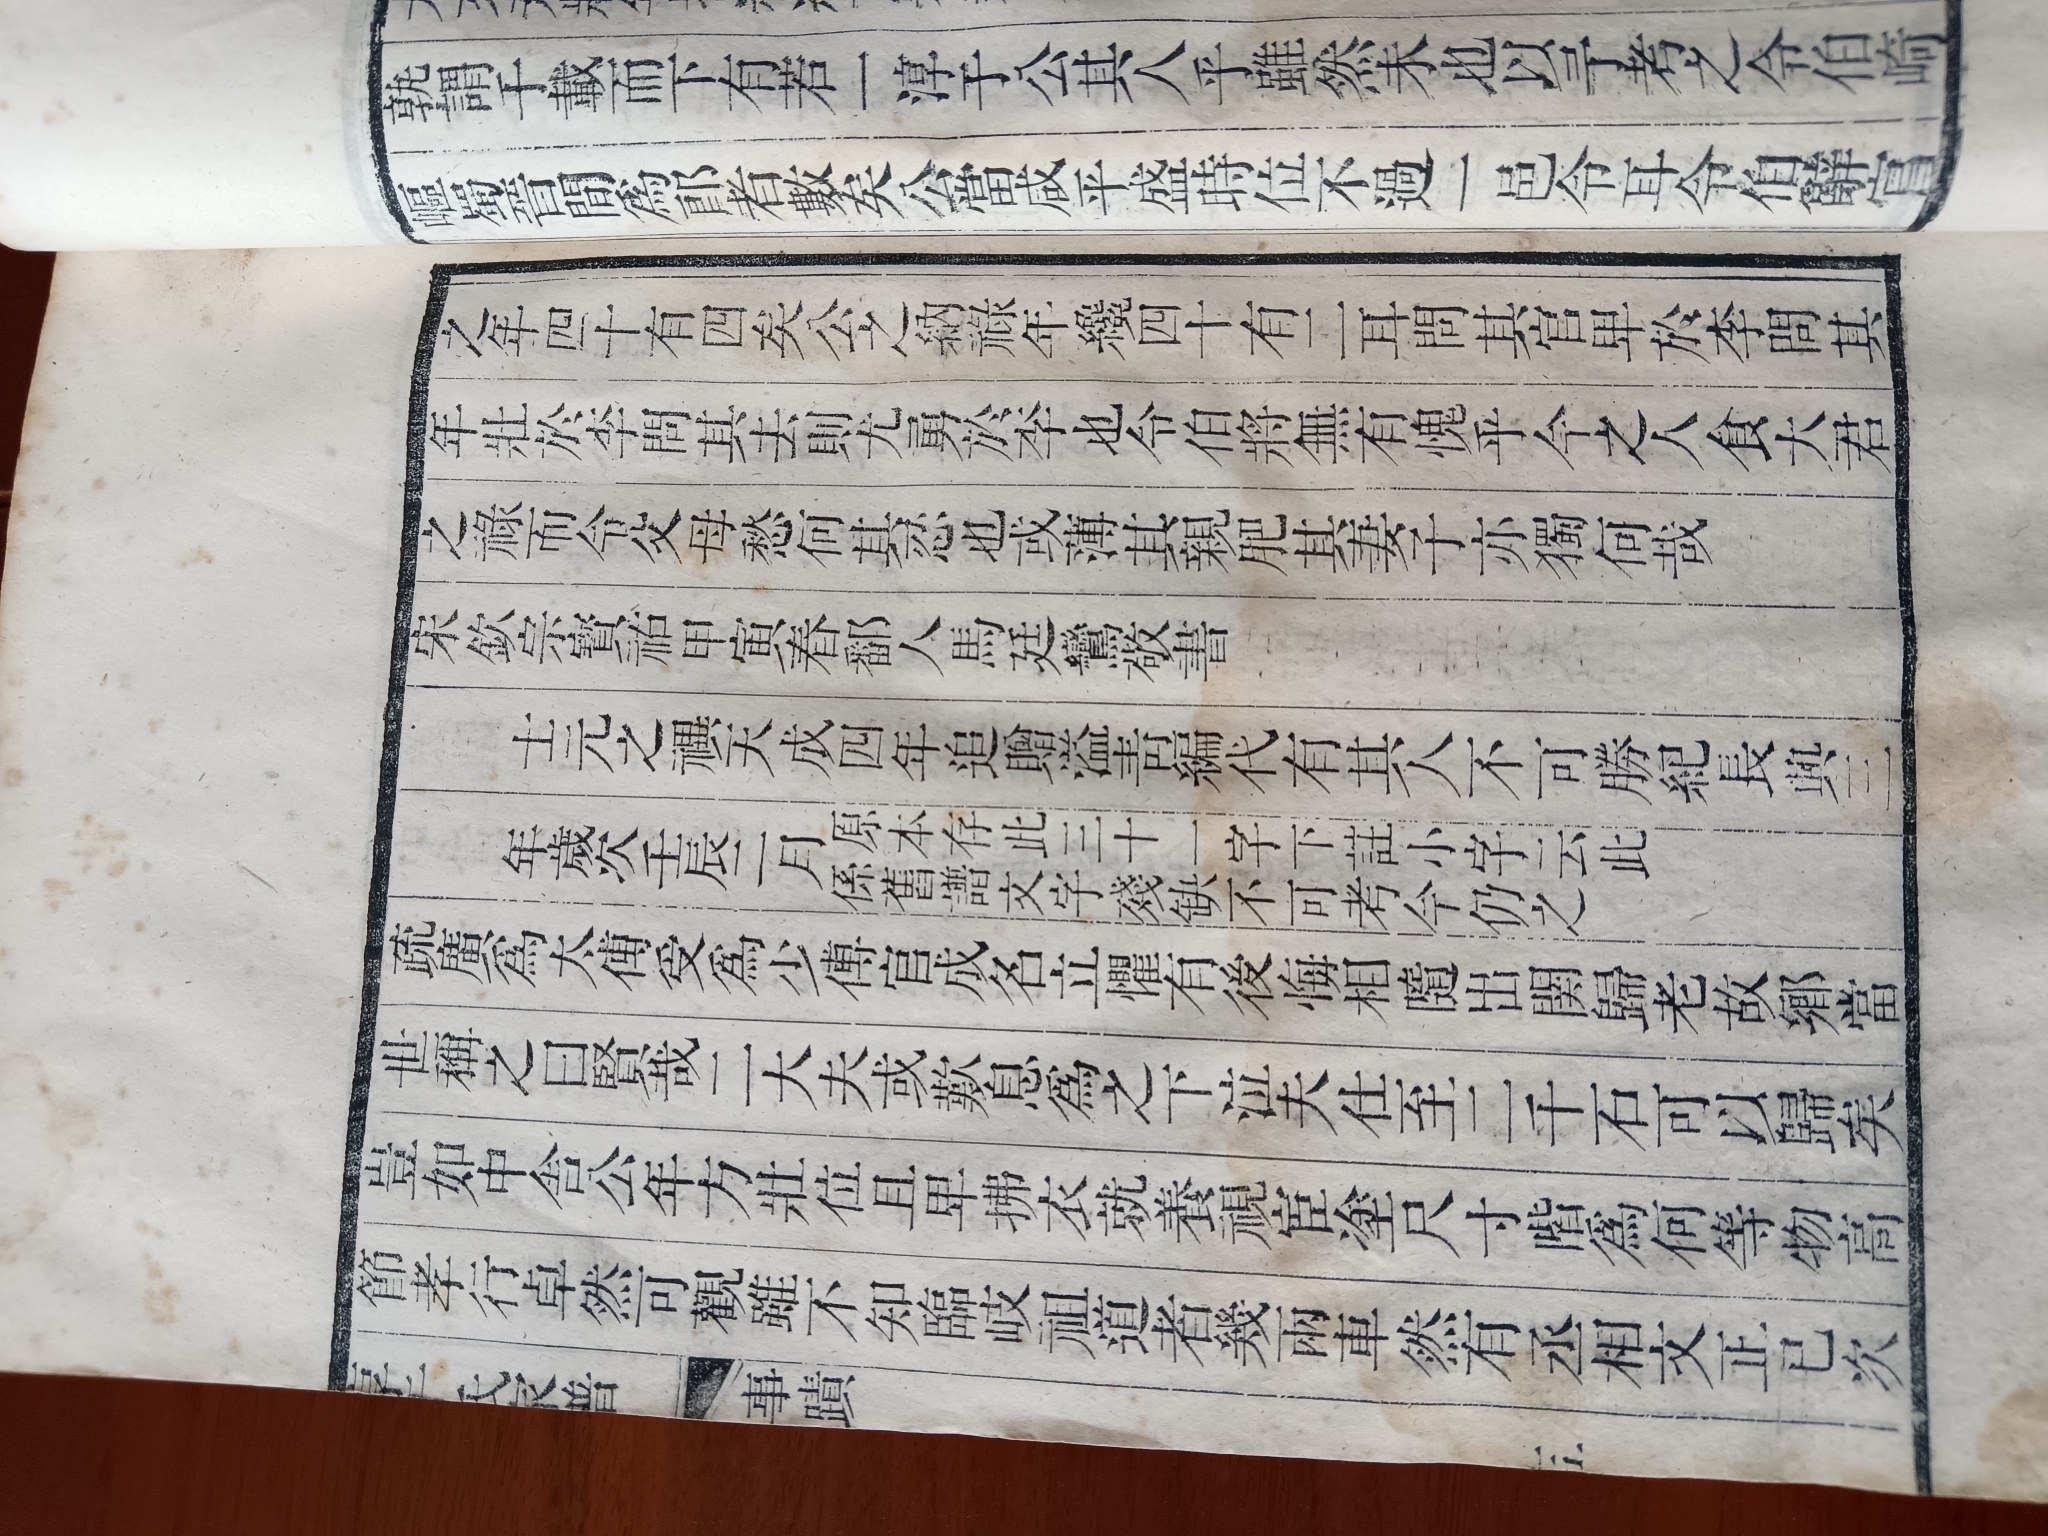 孰謂千載而下有若一淳于公其人乎雖然未也以予考之令伯崎
嶇蜀晉間為郎者數矣公當咸平盛時位不過一邑令耳令伯辭官
之年四十有四矣公之納祿年纔四十有二耳問其官卑於李問其
年壯於李問其去則尤勇於李也令伯將無有愧乎今之人食大君
之祿而令父母愁何其忍也或薄其親肥其妻子亦獨何哉
宋欽宗寶祐甲寅春鄱人馬廷鸞敬書
士元之禩天成四年追贈謚壽編代有其人不可勝紀長興三
年歲次壬辰二月原本存此三十一字下註小字云此
係舊譜文字殘缺不可考今仍之
疏廣為大傅受為少傅官成名立懼有後悔相隨出關歸老故鄉當
世稱之曰賢哉二大夫或歎息為之下泣夫仕至二千石可以歸矣
豈如中舍公年方壯位且卑拂衣就養視宦塗尺寸階為何等物高
節孝行卓然可觀雖不知臨岐祖道者幾兩車然有丞相文正已次
氏宗譜
事蹟